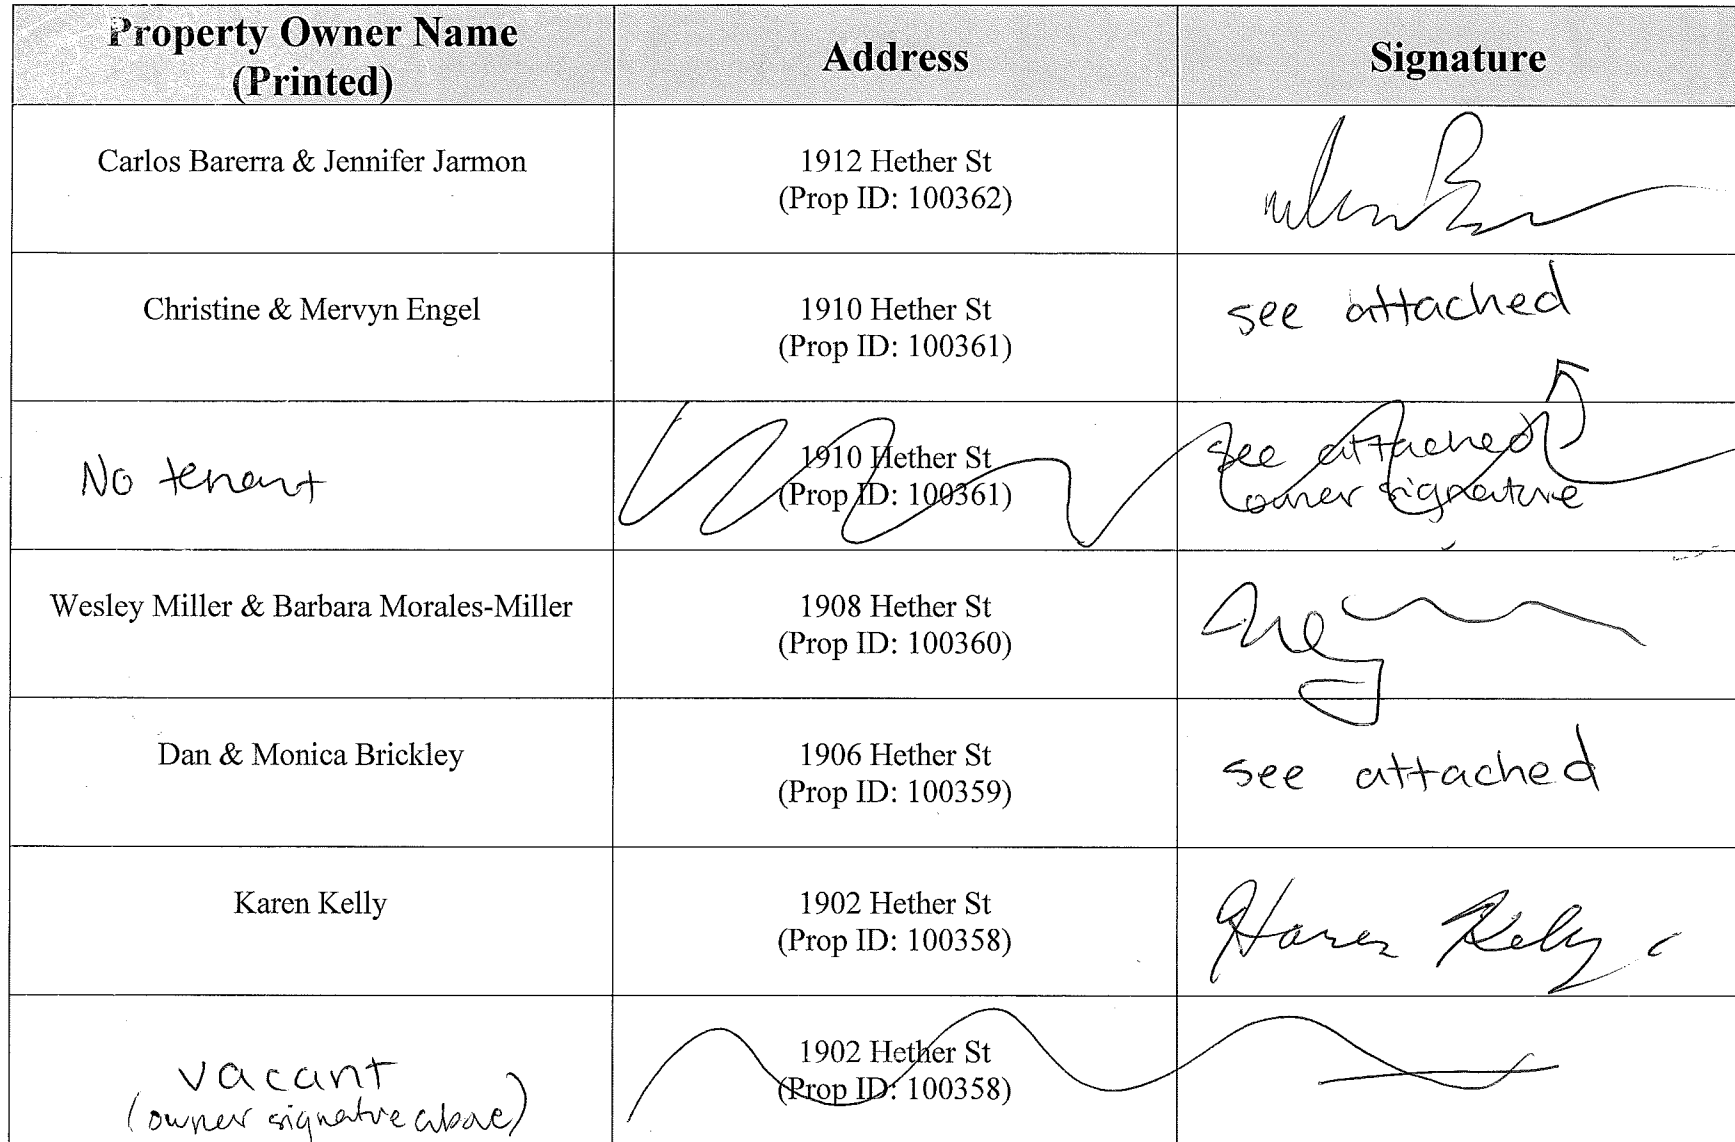 Property Owner Name
(Printed)
Address
Signature
Carlos Barerra & Jennifer Jarmon
1912 Hether St
(Prop ID: 100362)
Christine & Mervyn Engel
1910 Hether St
(Prop ID: 100361)
see attached
No tenant
1910 Hether St
(Prop ID: 100361)
see attached
owner signature
Wesley Miller & Barbara Morales-Miller
1908 Hether St
(Prop ID: 100360)
Dan & Monica Brickley
1906 Hether St
(Prop ID: 100359)
see attached
Karen Kelly
1902 Hether St
(Prop ID: 100358)
Karen Kelly
vacant
(owner signature above)
1902 Hether St
(Prop ID: 100358)